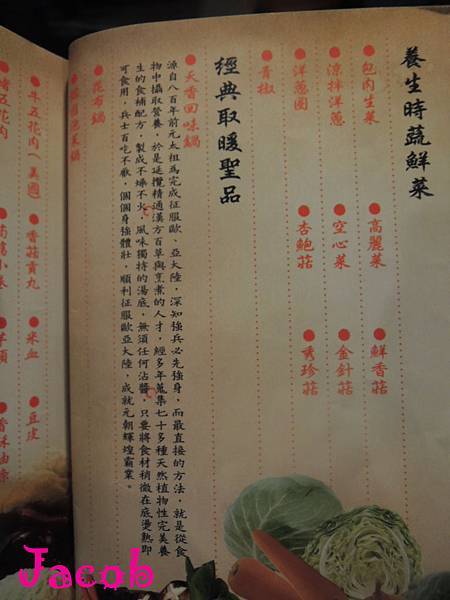 養生時蔬鮮菜
●包肉生菜 ●高麗菜 ●鮮香菇
●涼拌洋蔥 ●空心菜 ●金針菇
●洋蔥圈 ●杏鮑菇 ●秀珍菇
●青椒
經典取暖聖品
●天香回味鍋
源自八百年前元太祖為完成征服歐、亞大陸，深知強兵必先強身，而最直接的方法，就是從食
物中攝取營養，於是延攬精通漢方百草與烹煮的人才，經多年蒐集七十多種天然植物性完美養
生的食補配方，製成不燥不火，風味獨特的湯底，無須任何沾醬，只要將食材稍微在底燙熟即
可食用，兵士百吃不厭，個個身強體壯，順利征服歐亞大陸，成就元朝輝煌霸業。
●花布鍋
泡菜鍋
●牛五花肉(美國) ●香菇貢丸 ●米血 ●豆皮
五花肉
Jacob